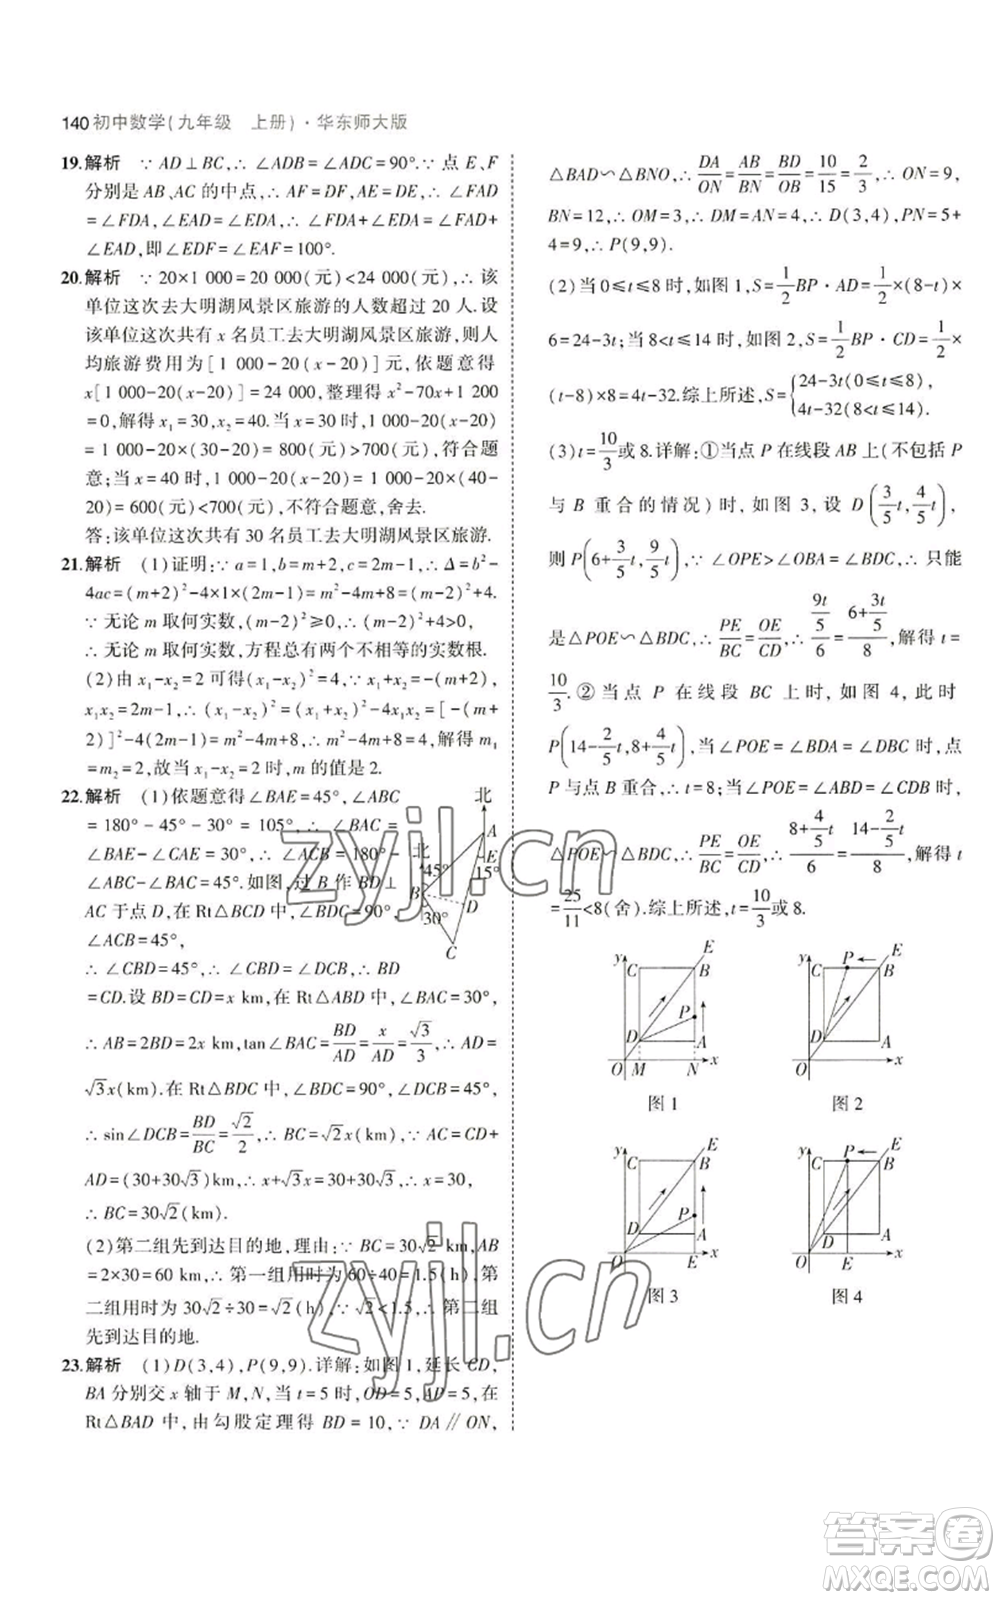 140 初中数学(九年级 上册)·华东师大版
19.解析 ∵ AD⊥BC,∴ ∠ADB=∠ADC=90°.∵ 点 E、F
分别是 AB、AC 的中点,∴ AF=DF,AE=DE,∴ ∠FAD
=∠FDA,∠EAD=∠EDA,∴ ∠FDA+∠EDA=∠FAD+
∠EAD,即∠EDF=∠EAF=100°.
20.解析 ∵ 20×1 000=20 000(元)<24 000(元),∴ 该
单位这次去大明湖风景区旅游的人数超过 20 人.设
该单位这次共有 x 名员工去大明湖风景区旅游,则人
均旅游费用为[1 000-20(x-20)]元,依题意得
x[1 000-20(x-20)]=24 000,整理得 x²-70x+1 200
=0,解得 x₁=30,x₂=40.当 x=30 时,1 000-20(x-20)
=1 000-20×(30-20)=800(元)>700(元),符合题
意;当 x=40 时,1 000-20(x-20)=1 000-20×(40-
20)=600(元)<700(元),不符合题意,舍去.
答:该单位这次共有 30 名员工去大明湖风景区旅游.
21.解析 (1)证明:∵ a=1,b=m+2,c=2m-1,∴ Δ=b²-
4ac=(m+2)²-4×1×(2m-1)=m²-4m+8=(m-2)²+4.
∵ 无论 m 取何实数,(m-2)²≥0,∴ (m-2)²+4>0,
∴ 无论 m 取何实数,方程总有两个不相等的实数根.
(2)由 x₁-x₂=2 可得(x₁-x₂)²=4,∵ x₁+x₂=-(m+2),
x₁x₂=2m-1,∴ (x₁-x₂)²=(x₁+x₂)²-4x₁x₂=[-(m+
2)]²-4(2m-1)=m²-4m+8,∴ m²-4m+8=4,解得 m₁
=m₂=2,故当 x₁-x₂=2 时,m 的值是 2.
22.解析 (1)依题意得∠BAE=45°,∠ABC
=180°-45°-30°=105°,∴ ∠BAC=
∠BAE-∠CAE=30°,∴ ∠ACB=180°-
∠ABC-∠BAC=45°.如图,过 B 作 BD⊥
AC 于点 D,在 Rt△BCD 中,∠BDC=90°,
∠ACB=45°,
∴ ∠CBD=45°,∴ ∠CBD=∠DCB,∴ BD
=CD.设 BD=CD=x km,在 Rt△ABD 中,∠BAC=30°,
∴ AB=2BD=2x km,tan∠BAC=BD/AD=x/AD=√3/3,∴ AD=
√3x(km).在 Rt△BDC 中,∠BDC=90°,∠DCB=45°,
∴ sin∠DCB=BD/BC=√2/2,∴ BC=√2x(km).∵ AC=CD+
AD=(30+30√3)km,∴ x+√3x=30+30√3,∴ x=30,
∴ BC=30√2(km).
(2)第二组先到达目的地,理由:∵ BC=30√2 km,AB
=2×30=60 km,∴ 第一组用时为 60÷40=1.5(h),第
二组用时为 30√2÷30=√2(h),∵ √2<1.5,∴ 第二组
先到达目的地.
北
A
E
北
45°
15°
B
D
30°
C
23.解析 (1)D(3,4),P(9,9).详解:如图 1,延长 CD,
BA 分别交 x 轴于 M,N,当 t=5 时,OD=5,AD=5,在
Rt△BAD 中,由勾股定理得 BD=10,∵ DA∥ON,
△BAD∽△BNO,∴ DA/ON=AB/BN=BD/OB=10/15=2/3,∴ON=9,
BN=12,∴ OM=3,∴ DM=AN=4,∴ D(3,4),PN=5+
4=9,∴ P(9,9).
(2)当 0≤t≤8 时,如图 1,S=1/2BP·AD=1/2×(8-t)×
6=24-3t;当 8<t≤14 时,如图 2,S=1/2BP·CD=1/2×
(t-8)×8=4t-32.综上所述,S={24-3t(0≤t≤8),
4t-32(8<t≤14).
(3)t=10/3或 8.详解:①当点 P 在线段 AB 上(不包括 P
与 B 重合的情况)时,如图 3,设 D(3/5t,4/5t),
则 P(6+3/5t,9/5t),∵ ∠OPE>∠OBA=∠BDC,∴ 只能
是△POE∽△BDC,∴ PE/BC=OE/CD,∴ (9t/5)/6=(6+3t/5)/8,解得 t=
10/3.②当点 P 在线段 BC 上时,如图 4,此时
P(14-2/5t,8+4/5t),当∠POE=∠BDA=∠ABC 时,点
P 与点 B 重合,∴ t=8;当∠POE=∠ABD=∠CDB 时,
△POE∽△BDC,∴ PE/BC=OE/CD,∴ (8+4/5t)/6=(14-2/5t)/8,解得 t
=25/11<8(舍).综上所述,t=10/3或 8.
y C B E P D A O M N x
图 1
y C P B E D A O x
图 2
y C B E P D O E x
图 3
y C P B E D O E x
图 4
zyjl.cn
zyjl.cn
答案卷
MXQE.COM